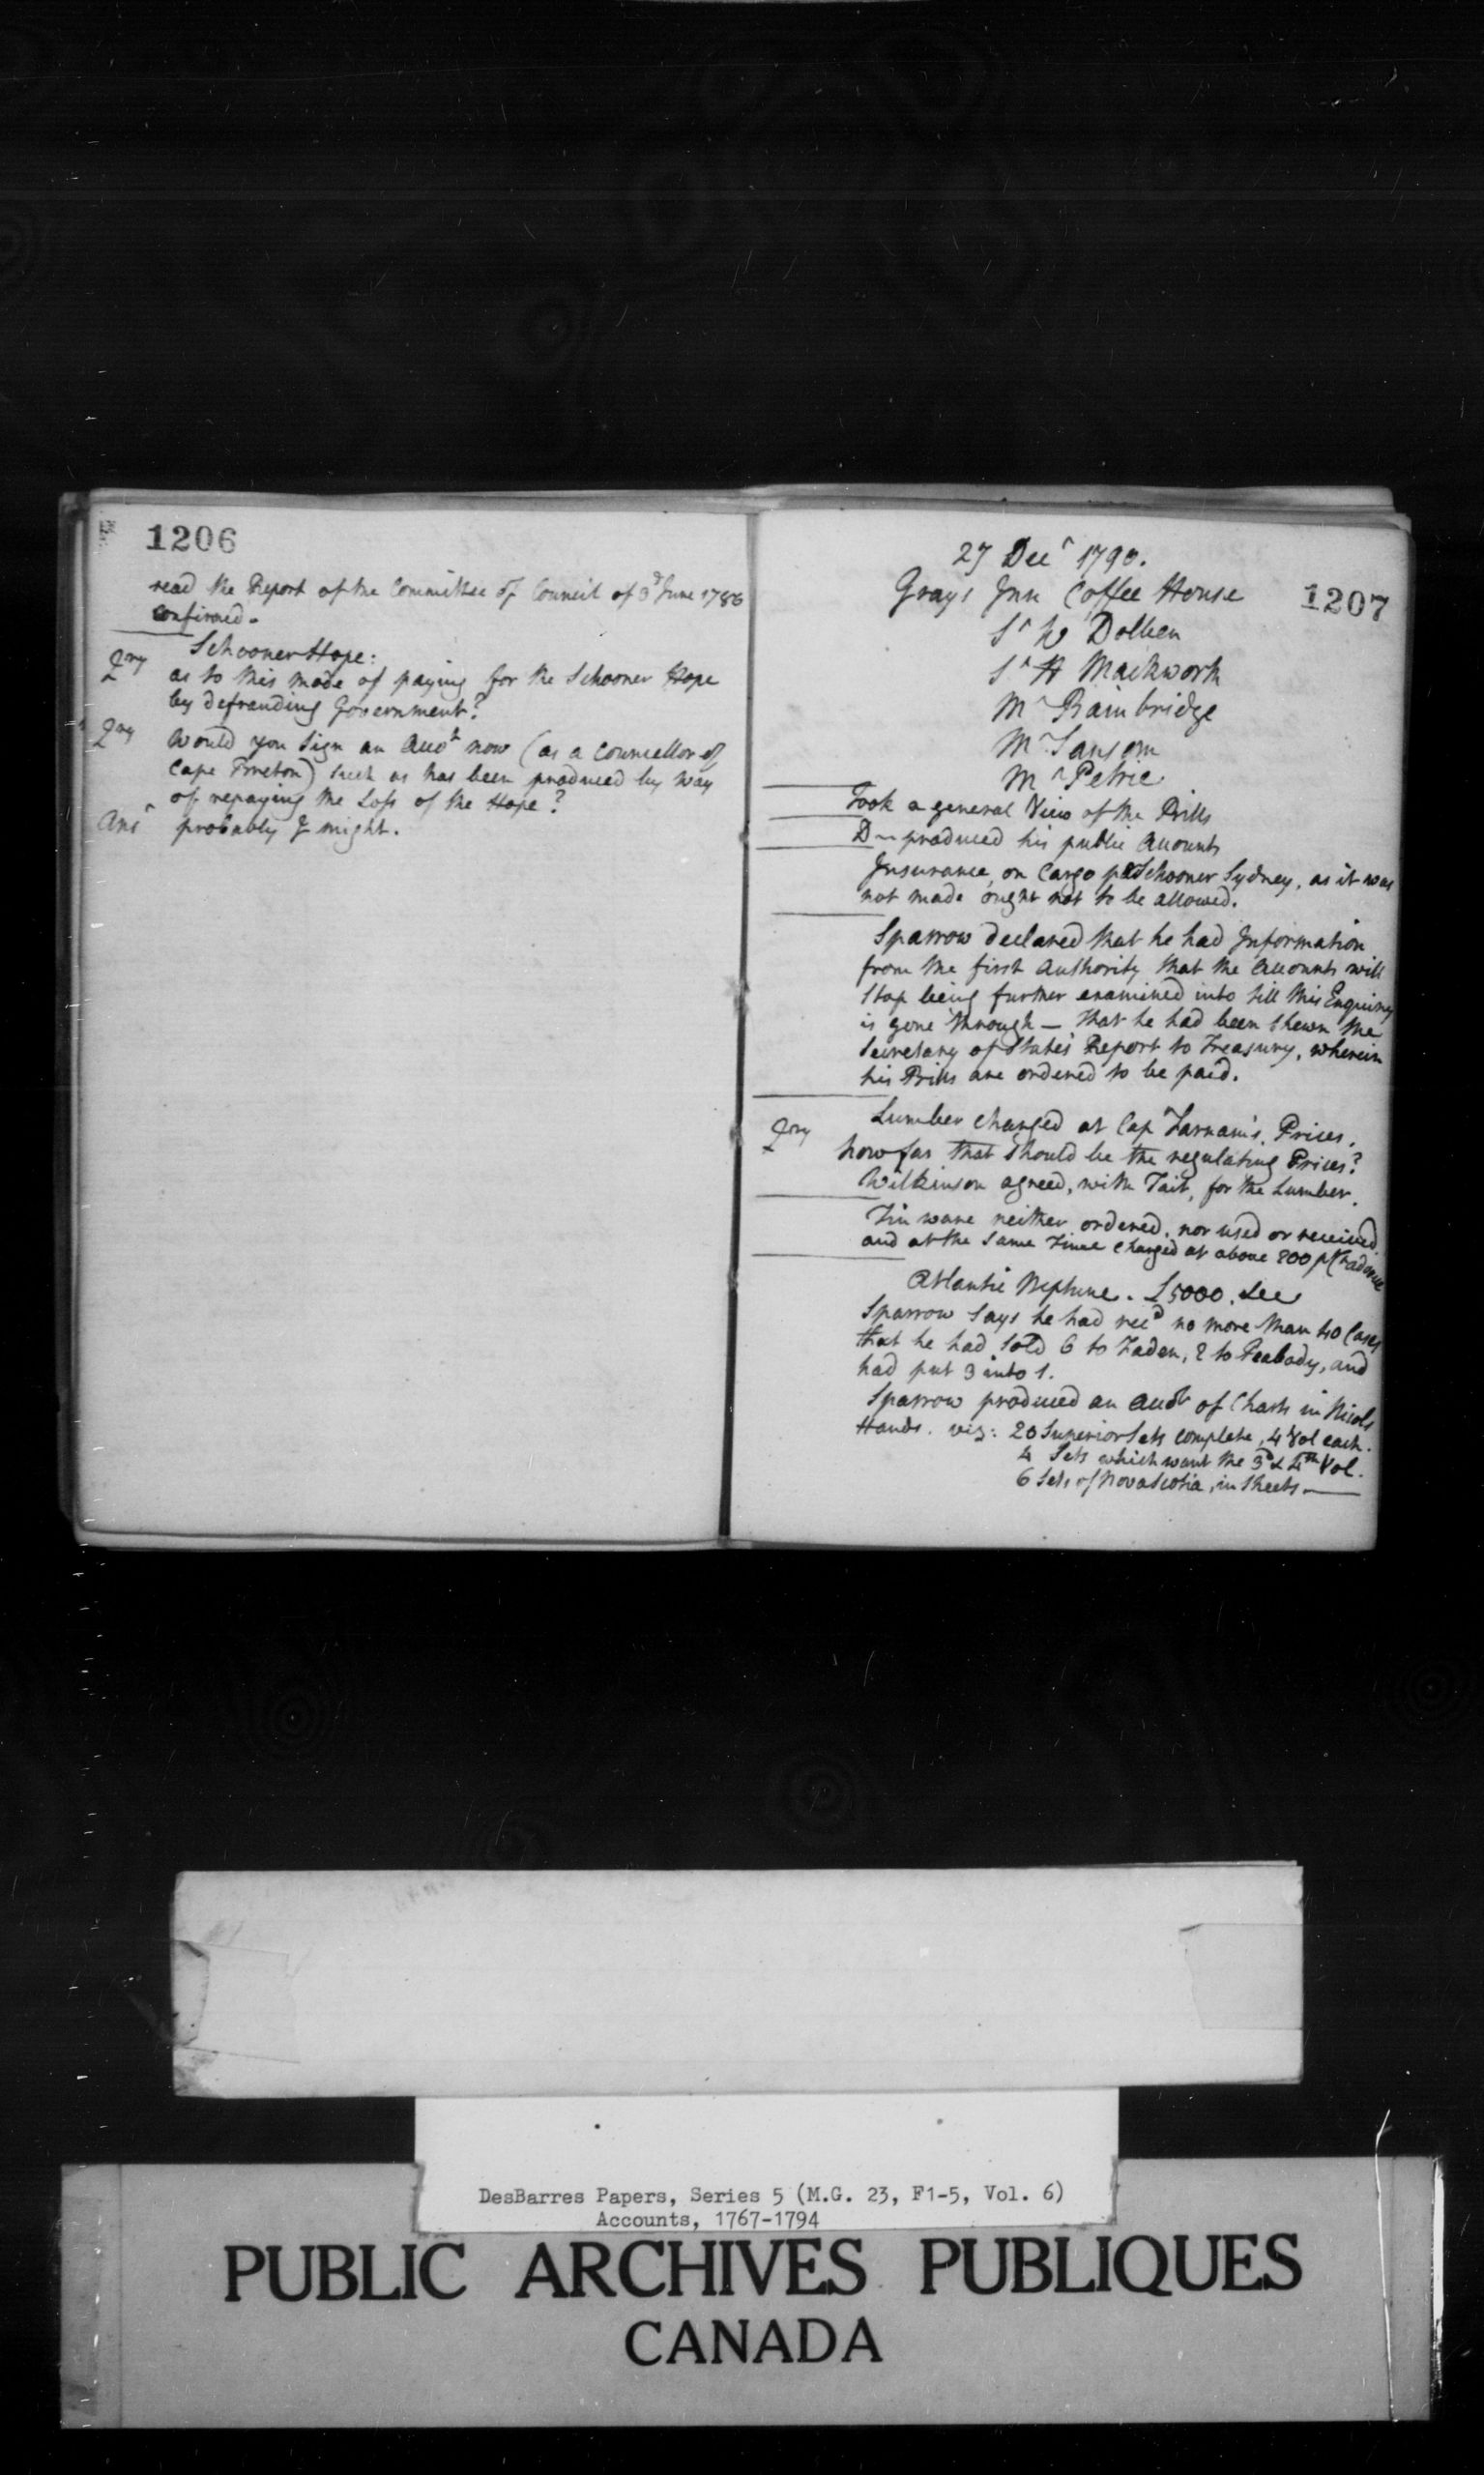 1206
read the Report of the Committee of Council of 3d June 1786
confirmed.
Schooner Hope:
Qry as to this mode of paying for the Schooner Hope
by defrauding Government?
Qry Would you Sign an Acco.t now (as a Councellor of
Cape Breton) such as has been produced by way
of repaying the Loss of the Hope?
Ansr probably I might.
27 Decr 1790.
Grays Inn Coffee House
1207
Sr W Dolben
Sr H Mackworth
Mr Bainbridge
Mr Sansom
Mr Petrie
Took a general View of the Bills
D~ produced his public Accounts
Insurance, on Cargo pr Schooner Sydney, as it was
not made ought not to be allowed.
Sparrow declared that he had Information
from the first Authority that the Accounts will
stop being further examined into till this Enquiry
is gone through — that he had been shewn the
Secretary of State's Report to Treasury, wherein
his Bills are ordered to be paid.
Qry Lumber charged at Cap Prices.
how far that should be the regulating Prices?
Wilkinson agreed, with Tait, for the Lumber.
Tin ware neither ordered, nor used or received
and at the same Time charged at above 200 p
Atlantic Neptune. £5000. See
Sparrow says he had recd no more than 40 Cases
that he had sold 6 to Faden, 2 to Peabody, and
had put 3 into 1.
Sparrow produced an Acct of Charts in Nicols
Hands. viz: 20 Superior Sets complete, 4 Vol each.
4 Sets which want the 3d & 4th Vol.
6 Sets of Nova Scotia, in Sheets —
DesBarres Papers, Series 5 (M.G. 23, F1-5, Vol. 6)
Accounts, 1767-1794
PUBLIC ARCHIVES PUBLIQUES
CANADA